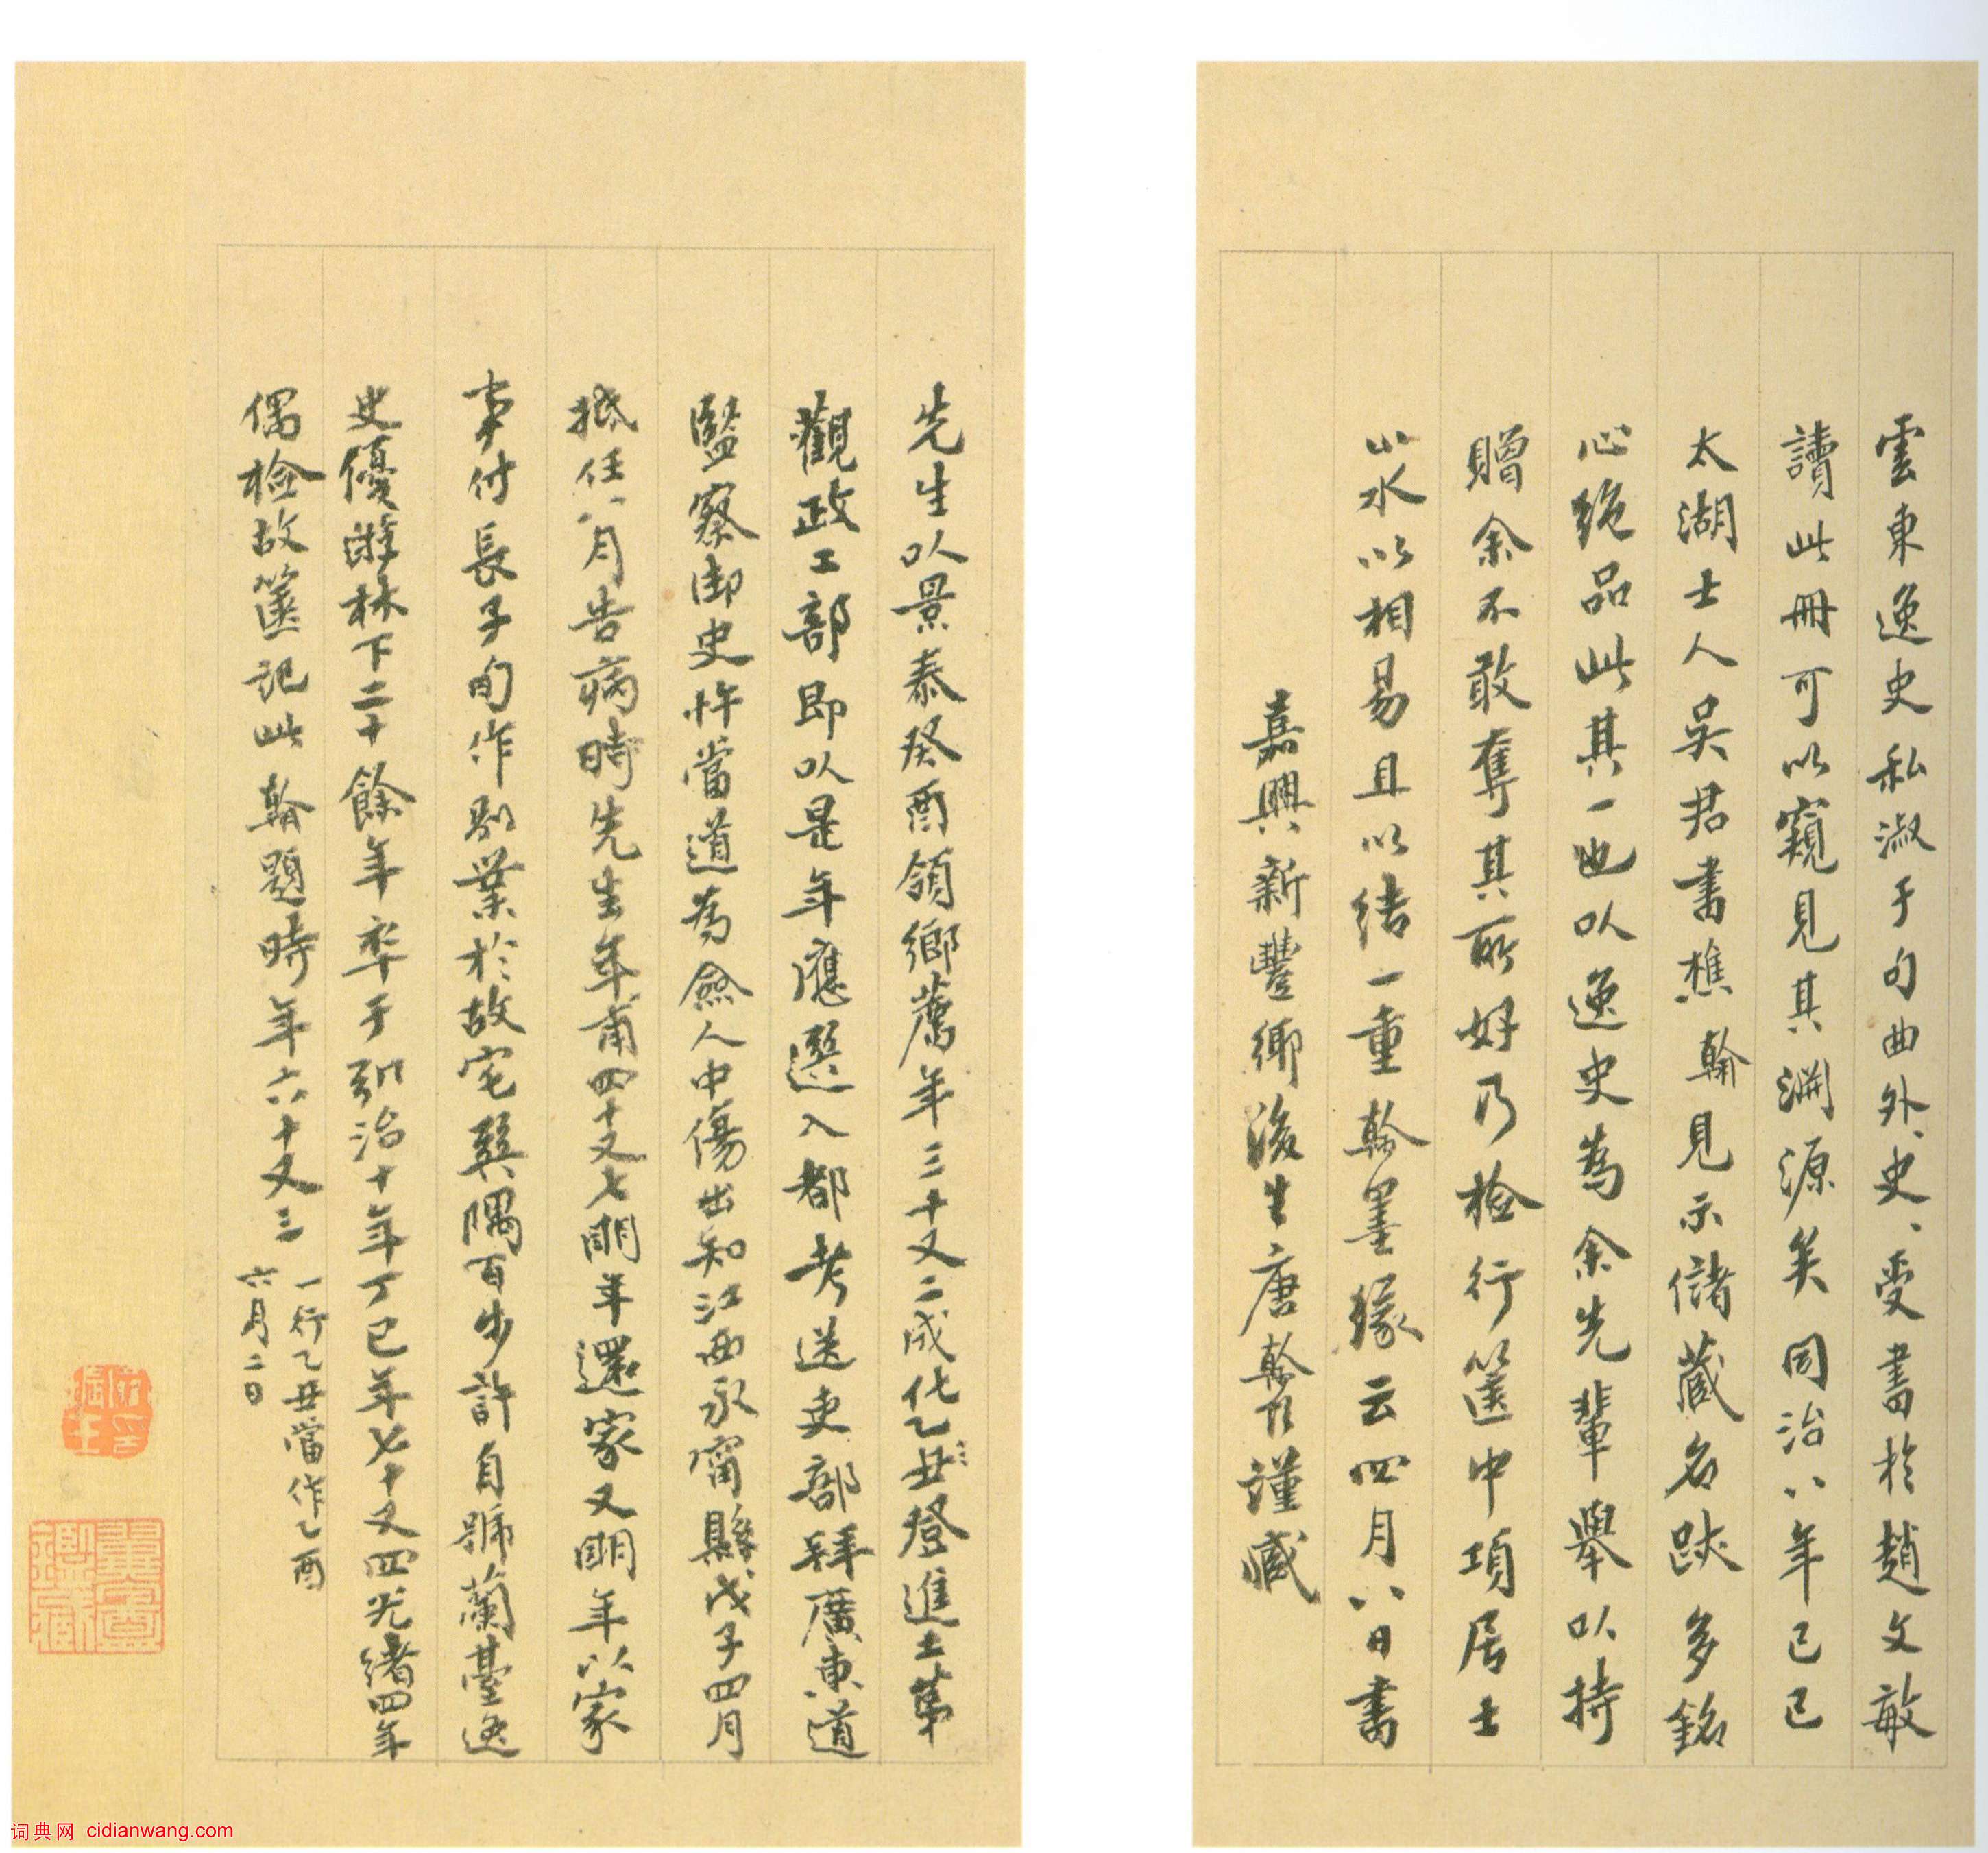 雲東逸史私淑于句曲外、史、受書於趙文敏
讀此冊可以窺見其淵源矣同治八年己巳
太湖士人吳君書樵翰見示儲藏名蹟多銘
心絕品此其一也以逸史為余先輩舉以持
贈余不敢奪其所好乃檢行篋中項居士
山水以相易且以結一重翰墨緣云四月八日書
嘉興新豐鄉後生唐翰題謹藏
先生以景泰癸酉領鄉薦年三十又二成化乙丑登進士第
觀政工部即以是年應選入都考送吏部拜廣東道
監察御史忤當道為僉人中傷出知江西永甯縣戊子四月
抵任八月告病時先生年甫四十又七明年還家又明年以家
事付長子旬作別業於故宅巽隅百步許自號蘭臺逸
史優游林下二十餘年卒于弘治十年丁巳年七十又四光緒四年
偶檢故篋記此翰題時年六十又三
一行乙丑當作乙酉
六月二日
鑑藏
词典网 cidianwang.com